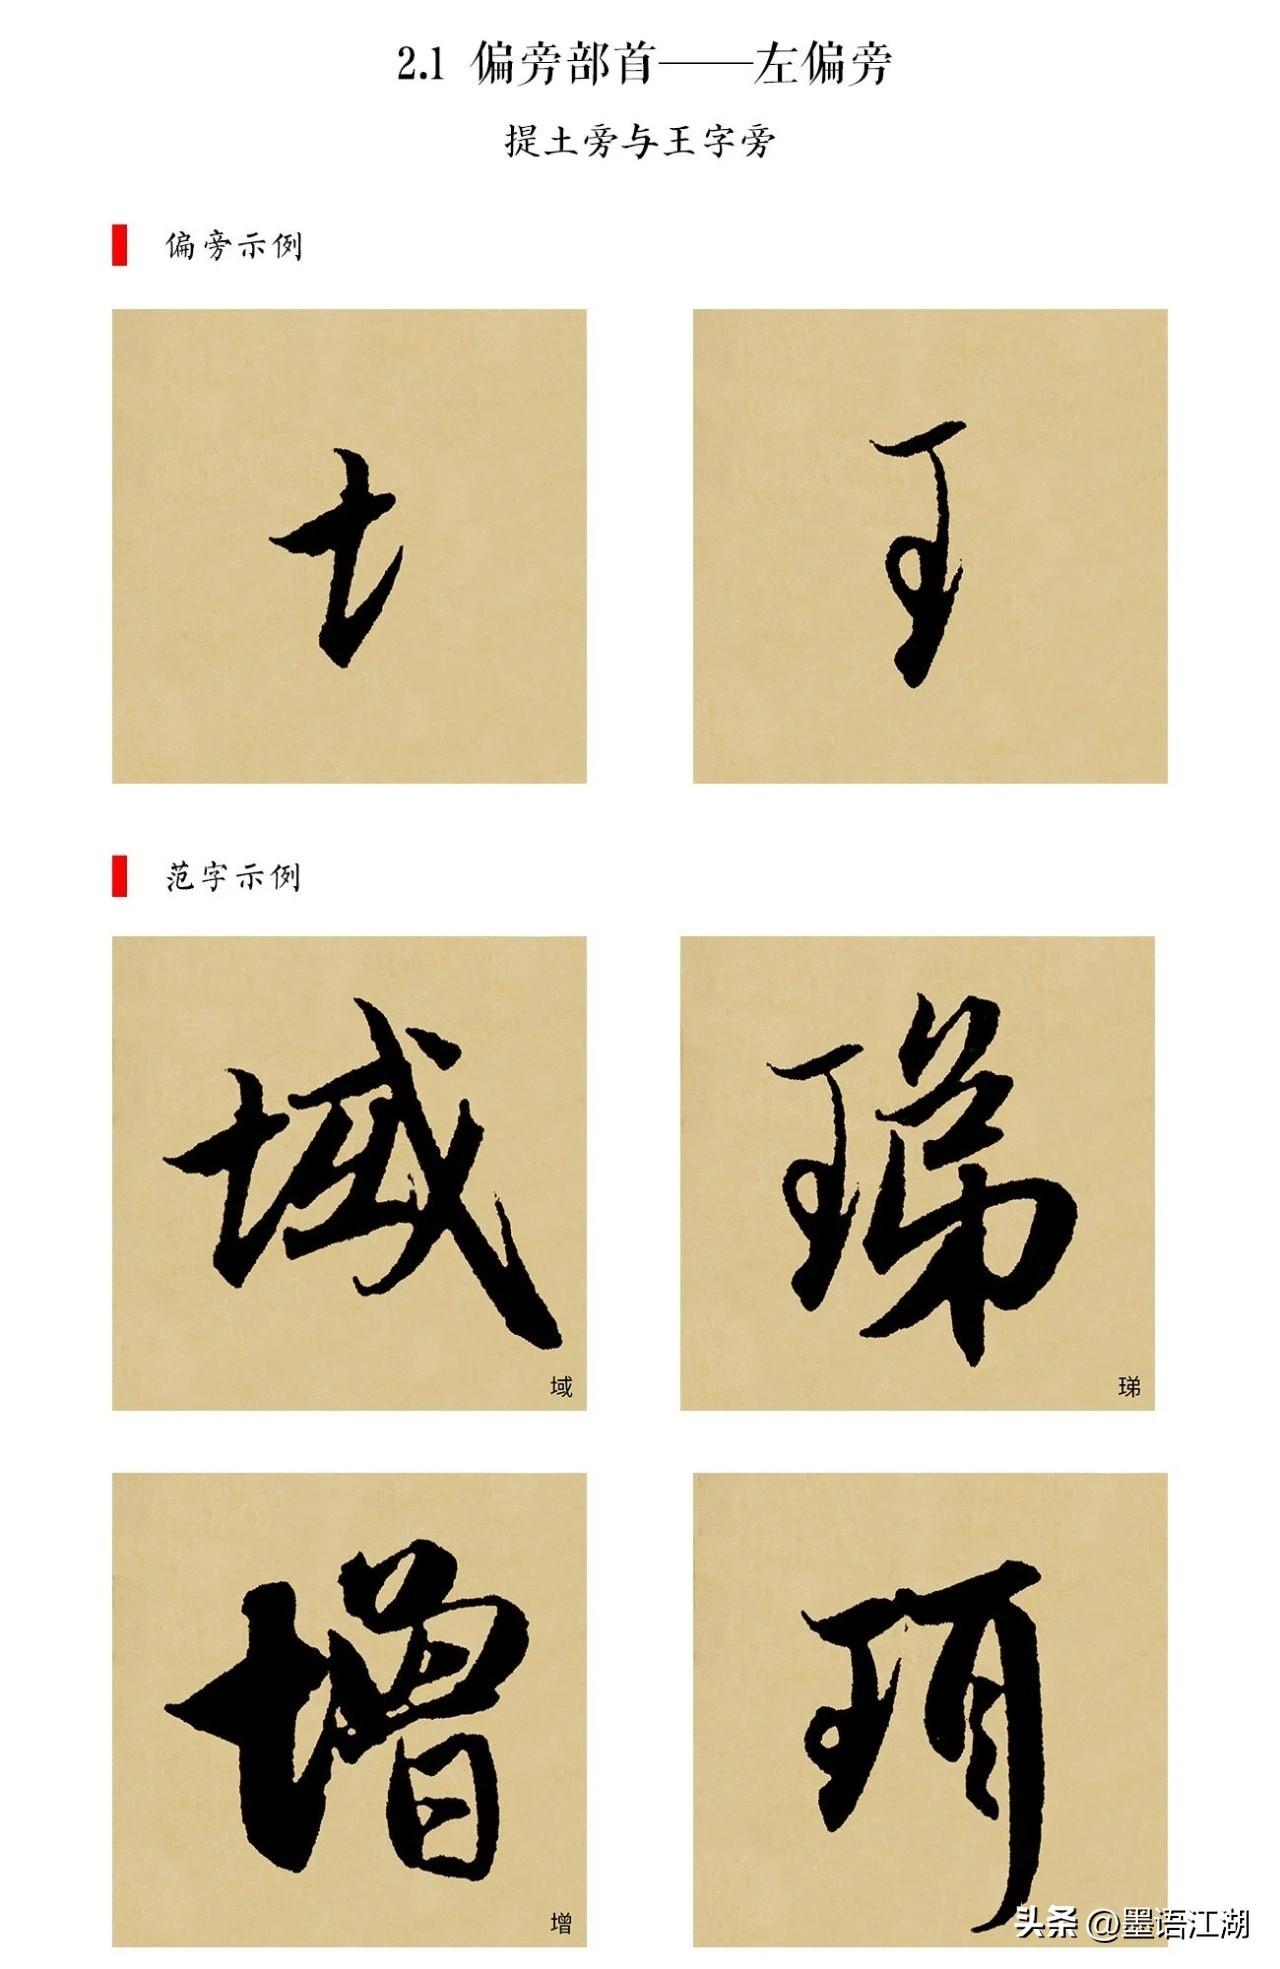 2.1 偏旁部首——左偏旁
提土旁与王字旁
偏旁示例
土 王
范字示例
域 珶
域 珶
增 珂
增
头条 @墨语江湖